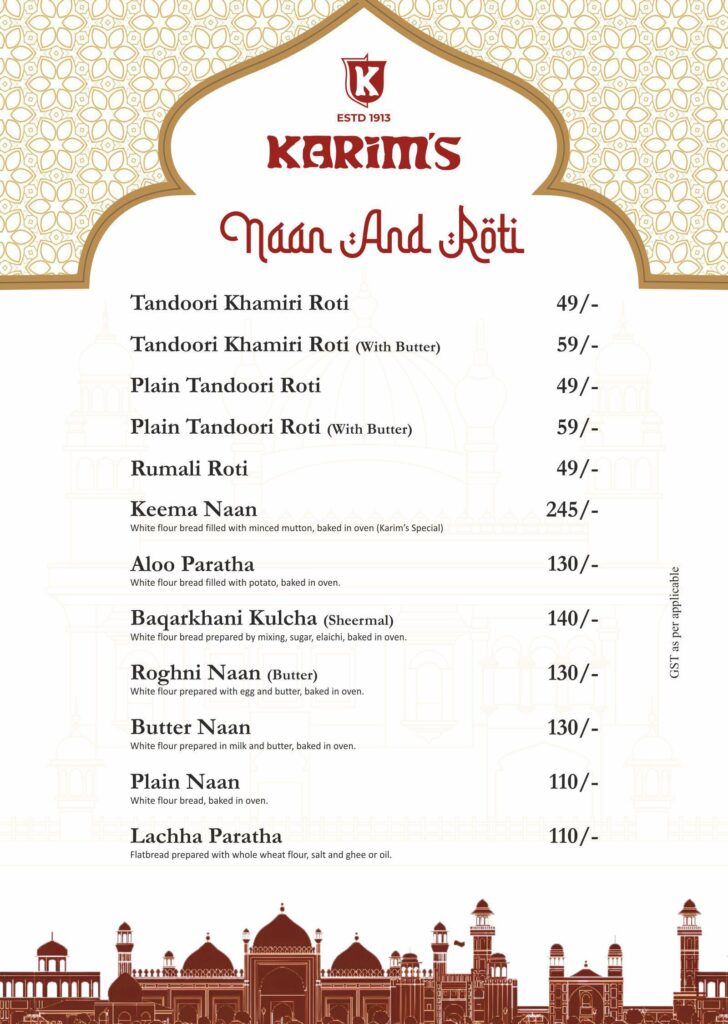 K
ESTD 1913
KARIM'S
Naan And Röti
Tandoori Khamiri Roti 49/-
Tandoori Khamiri Roti (With Butter) 59/-
Plain Tandoori Roti 49/-
Plain Tandoori Roti (With Butter) 59/-
Rumali Roti 49/-
Keema Naan 245/-
White flour bread filled with minced mutton, baked in oven (Karim's Special)
Aloo Paratha 130/-
White flour bread filled with potato, baked in oven.
Baqarkhani Kulcha (Sheermal) 140/-
White flour bread prepared by mixing, sugar, elaichi, baked in oven.
Roghni Naan (Butter) 130/-
White flour prepared with egg and butter, baked in oven.
Butter Naan 130/-
White flour prepared in milk and butter, baked in oven.
Plain Naan 110/-
White flour bread, baked in oven.
Lachha Paratha 110/-
Flatbread prepared with whole wheat flour, salt and ghee or oil.
GST as per applicable